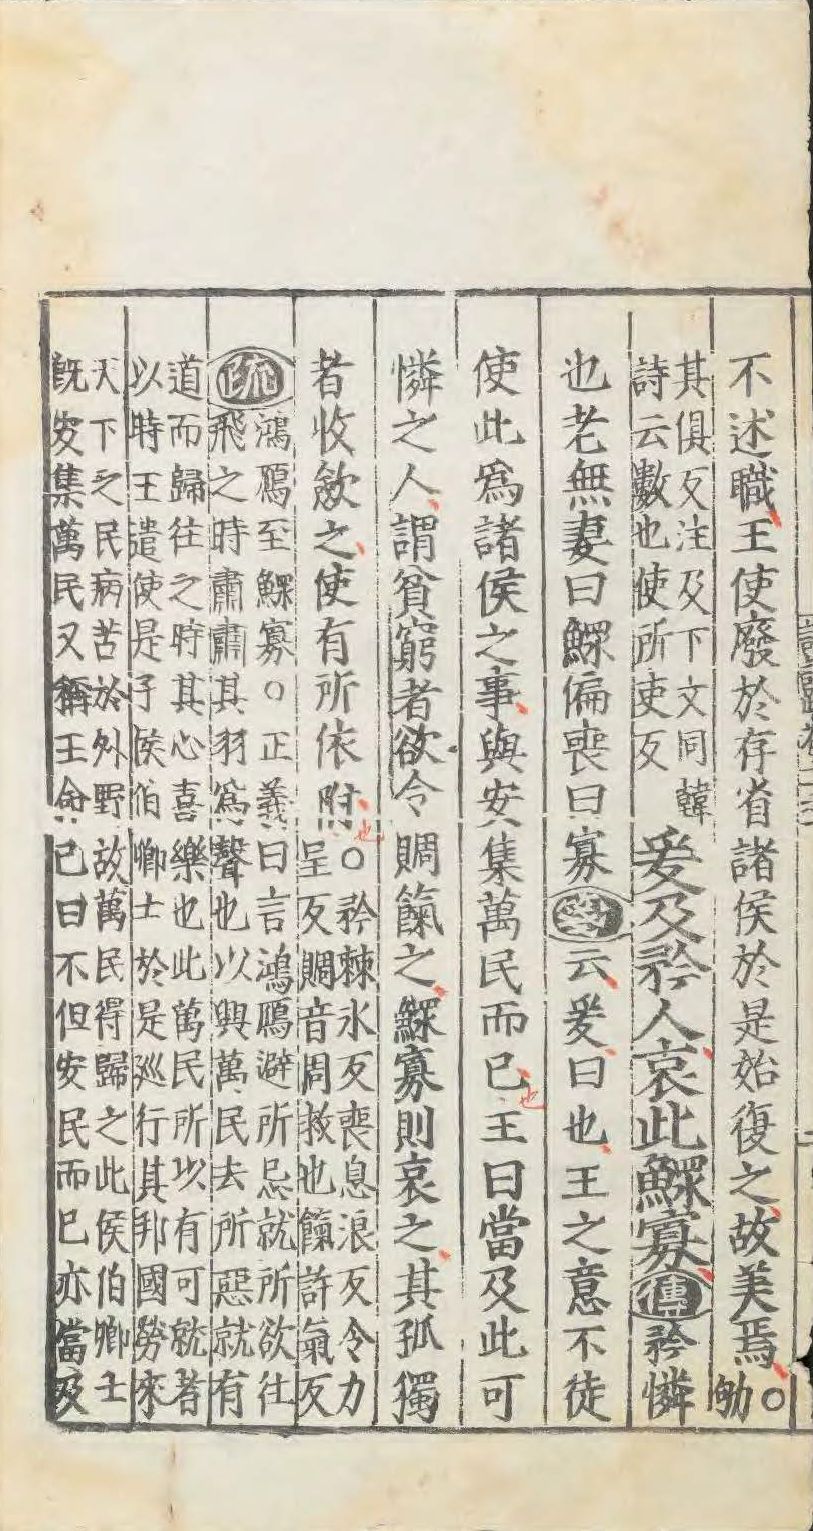 不述職王使廢於存省諸侯於是始復之故美焉○劬
其俱反注及下文同韓
詩云數也使所吏反
爰及矜人哀此鰥寡傳矜憐
也老無妻曰鰥偏喪曰寡箋云爰曰也王之意不徒
使此爲諸侯之事與安集萬民而已也王曰當及此可
憐之人謂貧窮者欲令賙餼之鰥寡則哀之其孤獨
者收斂之使有所依附也○
矜棘氷反喪息浪反令力
呈反賙音周救也餼許氣反
疏
鴻鴈至鰥寡○正義曰言鴻鴈避所忌就所欲往
飛之時肅肅其羽爲聲也以興萬民去所惡就有
道而歸往之時其心喜樂也此萬民所以有可就者
以時王遣使是子侯伯卿士於是巡行其邦國勞來
天下之民病苦於外野故萬民得歸之此侯伯卿士
旣安集萬民又稱王命己曰不但安民而已亦當及